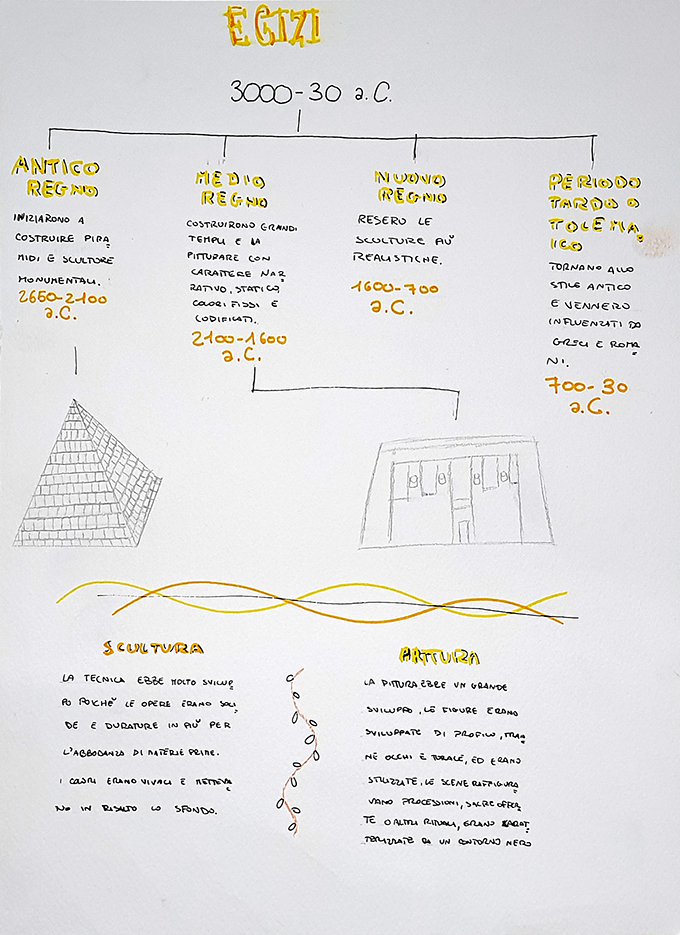 EGIZI
3000-30 a.C.
ANTICO
REGNO
INIZIARONO A
COSTRUIRE PIRA
MIDI E SCULTORE
MONUMENTALI.
2650-2100
a.C.
MEDIO
REGNO
COSTRUIRONO GRANDI
TEMPLI E LA
PITTURARE CON
CARATTERE NAR
RATIVO, STATICO,
COLORI FISSI E
CODIFICATI.
2100-1600
a.C.
NUOVO
REGNO
RESERO LE
SCULTURE PIÙ
REALISTICHE.
1600-700
a.C.
PERIODO
TARDO O
TOLEMA
ICO
TORNANO ALLO
STILE ANTICO
E VENNERO
INFLUENZATI DA
GRECI E ROMA
NI.
700-30
a.C.
SCULTURA
LA TECNICA EBBE MOLTO SVILUP
PO POICHÈ LE OPERE ERANO SOLI
DE E DURATURE IN PIÙ PER
L'ABBODANZA DI MATERIE PRIME.
I COLORI ERANO VIVACI E METTEVA
NO IN RISALTO LO SFONDO.
PITTURA
LA PITTURA EBBE UN GRANDE
SVILUPPO, LE FIGURE ERANO
SVILUPPATE DI PROFILO, TRAN
NE OCCHI E TORACE, ED ERANO
STILIZZATE, LE SCENE RAFFIGURA
VANO PROCESSIONI, SACRE OFFER
TE O ALTRI RITUALI, ERANO CARAT
TERIZZATE DA UN CONTORNO NERO